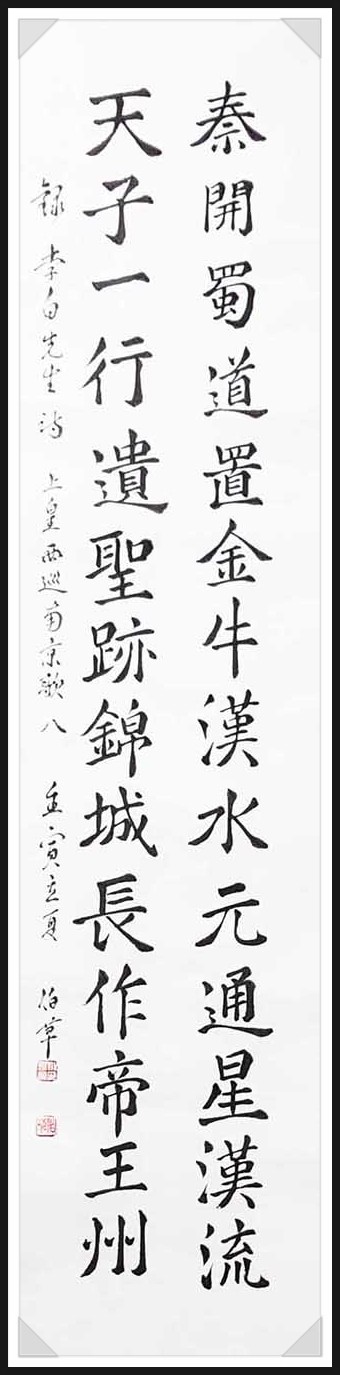 秦開蜀道置金牛漢水元通星漢流
天子一行遺聖跡錦城長作帝王州
録 李白先生詩 上皇西巡南京歌八 壬寅立夏 伯章